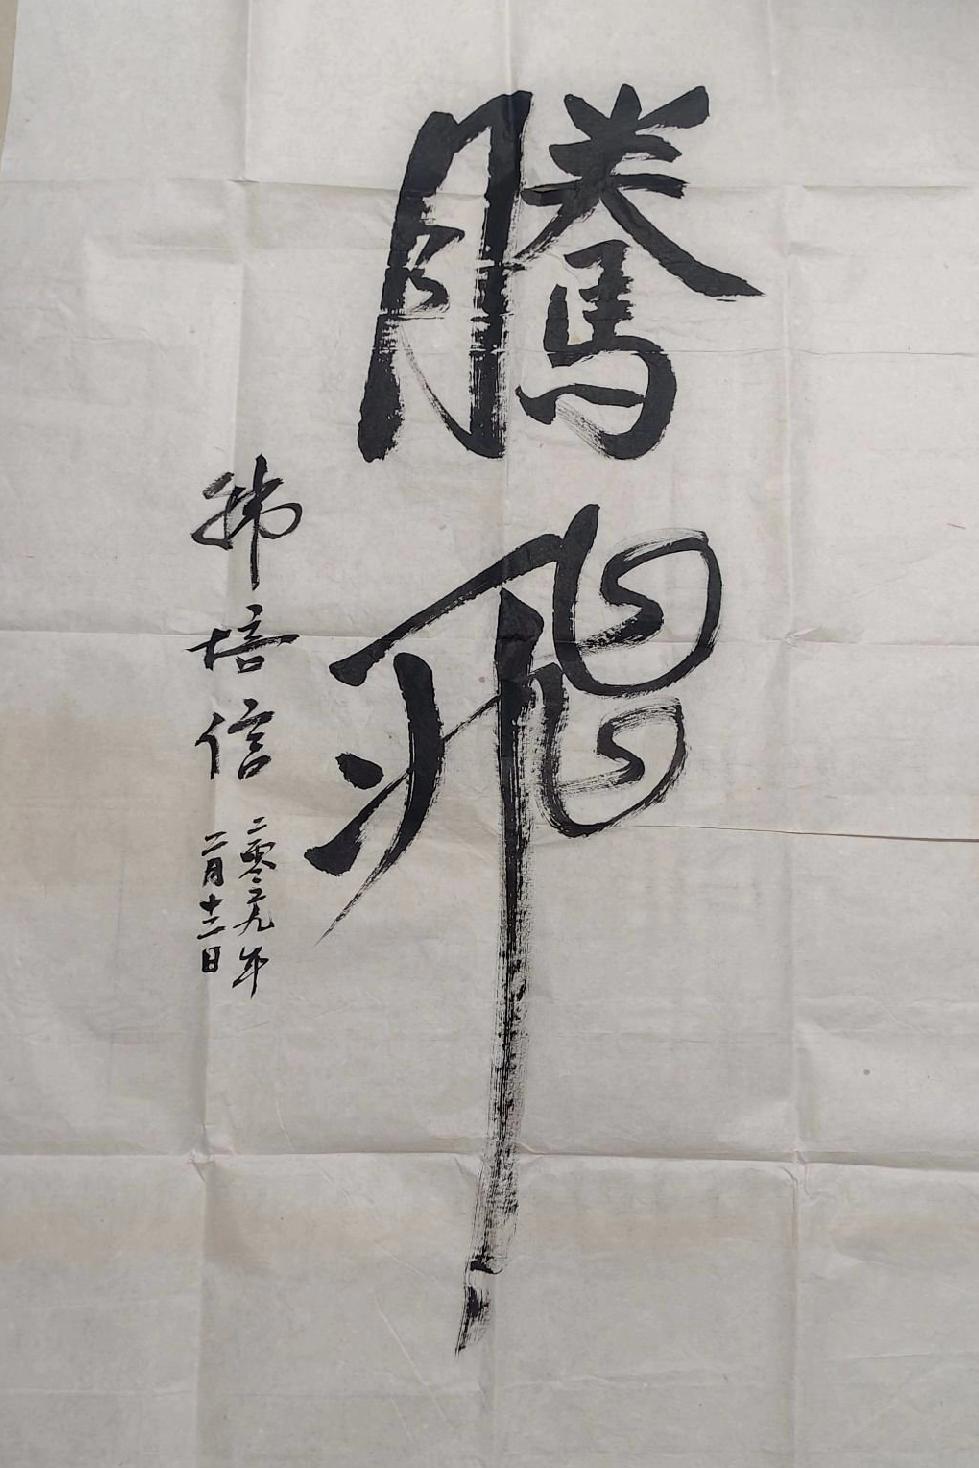 騰飛
韩培信
二零零九年
二月十二日